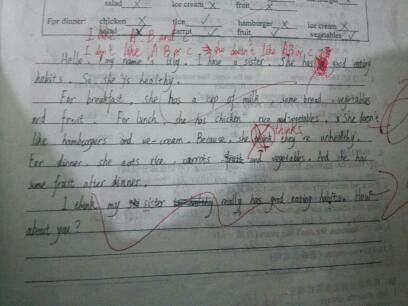 salad X ice cream X fruit
For dinner: chicken X rice ✓ hamburger X ice cream X
salad X carrot ✓ fruit ✓ vegetables ✓
I like A B and C
I don't like A B or C → she doesn't like A B or C
Hello, my name is Lily. I have a sister. She has good eating
habits. So she is healthy.
For breakfast, she has a cup of milk, some bread, vegetables
and fruit. For lunch, she has chicken rice and vegetables. She doesn't
like hamburgers and ice-cream. Because, she thinks they're unhealthy.
For dinner, she eats rice, carrots and vegetables. And she has
some fruit after dinner.
I think my sister really has good eating habits. How
about you?